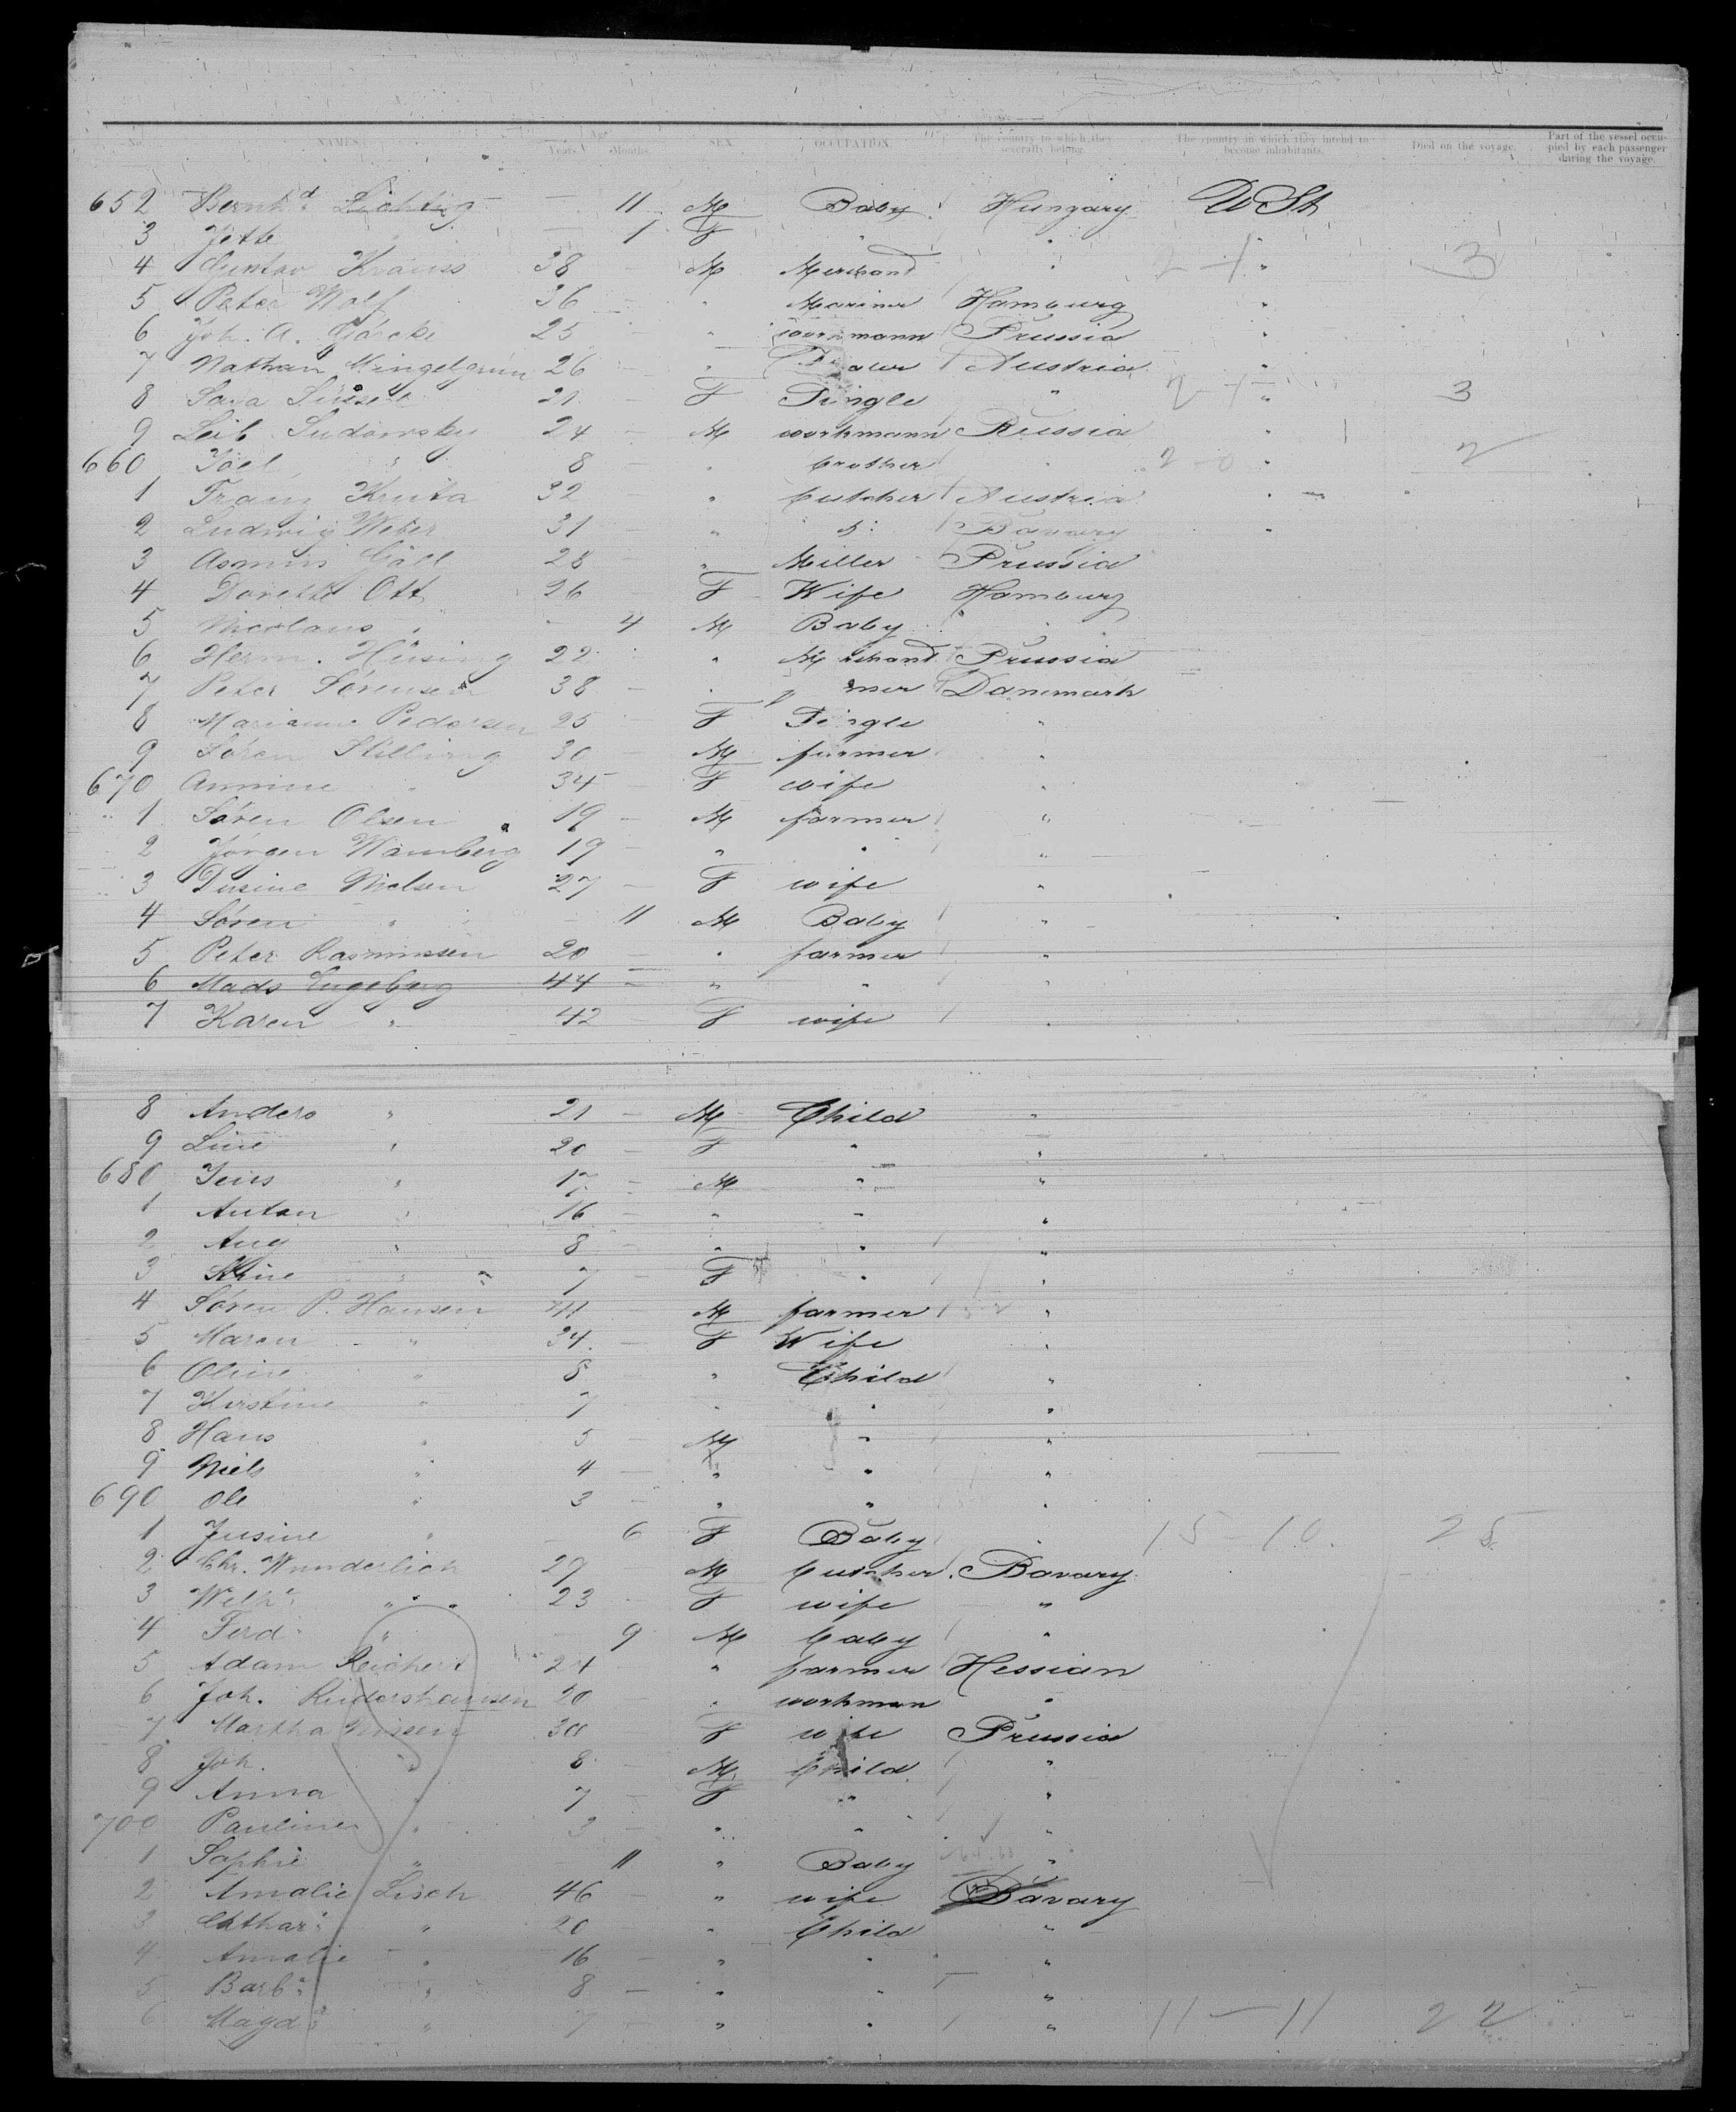 No. NAMES. Age Years. Months. SEX. OCCUPATION. The country to which they severally belong. The country in which they intend to become inhabitants. Died on the voyage. Part of the vessel occupied by each passenger during the voyage.
652 Bernhd. Lichtig — 11 M Baby Hungary U St
3 Jette " — 1 F " " "
4 Gustav Krauss 38 — M Merchand " 2 - 1 " 3
5 Peter Wolf 36 — " Mariner Hamburg "
6 Joh. A. 25 — " workmann Prussia "
7 Nathan Mingelgrün 26 — " Austria "
8 Sara 21 — F Single " 2 - 1 " 3
9 Leib Sudowsky 24 — M workmann Russia "
660 Joel " 8 — " brother " 2 - 0 " 2
1 Franz Kruta 32 " butcher Austria "
2 Ludwig Weber 31 — " " Bavary "
3 Asmus 28 — " Miller Prussia
4 Dorette Ott 26 — F Wife Hamburg
5 Nicolaus " - 4 M Baby "
6 Herm. Hüsing 22 " Prussia
7 Peter Sörensen 38 — " Danemark
8 Marianne Pedersen 25 F Single "
9 Sören Stilling 30 — M farmer "
670 Annine " 34 — F wife "
1 Sören Olsen 19 — M farmer "
2 Jörgen Wamberg 19 — " " "
3 Nielsen 27 — F wife "
4 Sören " — 11 M Baby "
5 Peter Rasmussen 20 — " farmer "
6 Mads Engebjerg 44 — " " "
7 Karen " 42 F wife "
8 Anders " 21 — M Child "
9 Line " 20 — F " "
680 Jens " 17 — M " "
1 Anton " 16 — " " "
2 Aug " 8 — " " "
3 Stine " 7 — F " "
4 Sören P. Hansen 41 M farmer "
5 Maren " 34. — F Wife "
6 Oline " 8 " Child "
7 Kirstine " 7 " " "
8 Hans " 5 M " "
9 Niels " 4 — " " "
690 Ole " 3 — " " "
1 Jusine " — 6 F Baby " 15 - 10. 25
2 Chr. Wunderlich 27 M butcher Bavary
3 " 23 F wife "
4 Ferd. " — 9 M baby "
5 Adam Reichert 24 " farmer Hessian
6 Joh. Rudershausen 20 " workman "
7 Martha Nissen 30 F wife Prussia
8 Joh. " 8 — M Child "
9 Anna " 7 — F " "
700 Pauline " 3 — " " "
1 Sophie " 11 " Baby "
2 Amalie Lisch 46 — " wife Bavary
3 Cathar: " 20 " Child "
4 Amalie " 16 — " " "
5 Barb: " 8 — " " "
6 Magd: " 7 — " " " 11 - 11 22